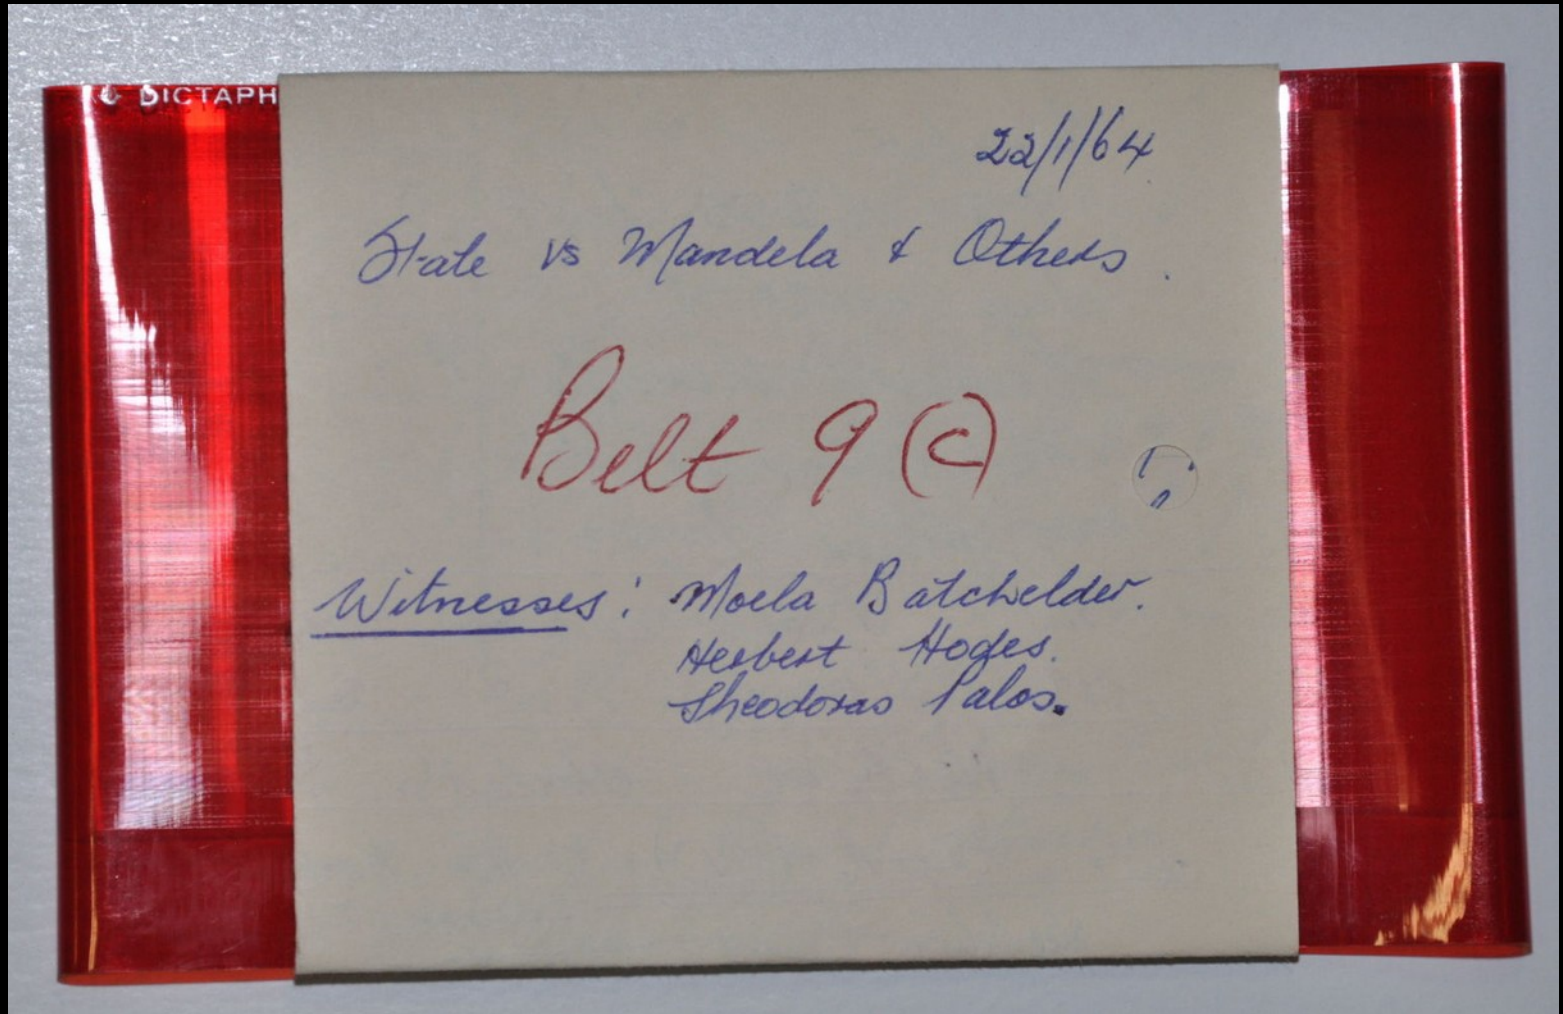 DICTAPH
22/1/64
State vs Mandela & Others.
Belt 9 (c)
Witnesses: Moela Batchelder.
Herbert Hodes.
Theodoras Palos.